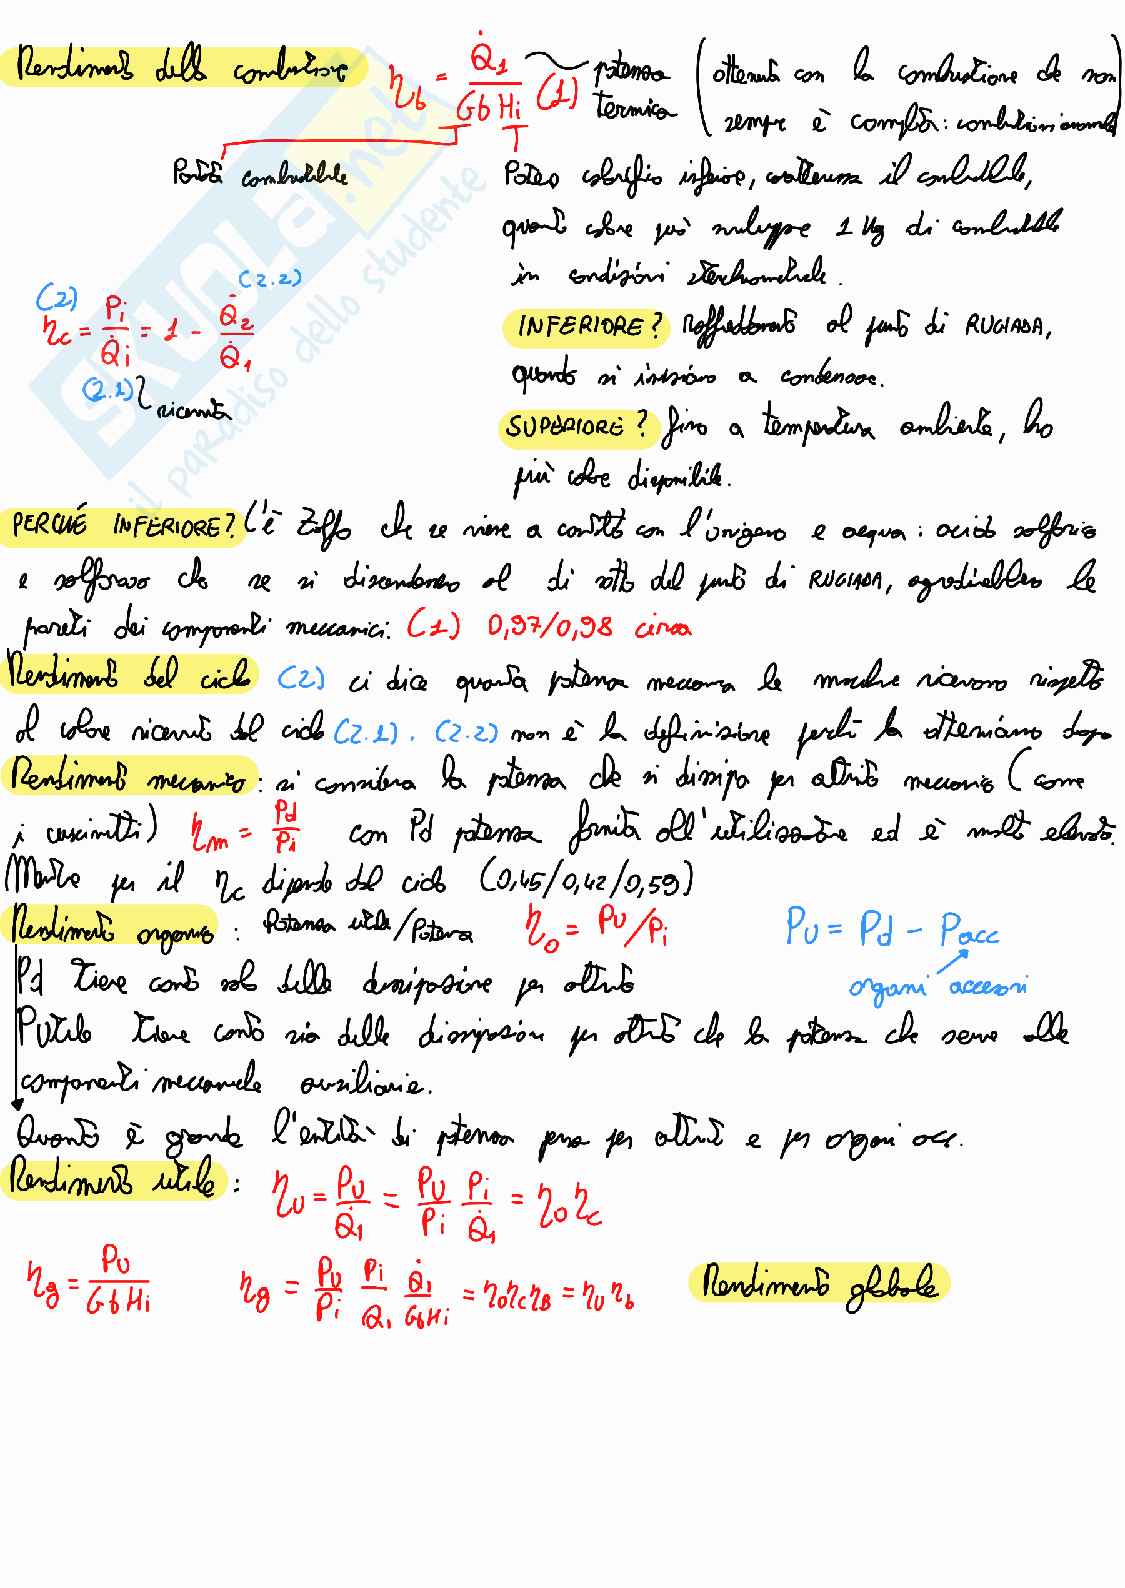 Rendimento della combustione η_b = Q̇₁ / (Gb Hi) (1) potenza termica (ottenuta con la combustione che non
sempre è completa: combustioni anomale)
Portata combustibile
Potere calorifico inferiore, caratterizza il combustibile,
quanto calore può sviluppare 1 Kg di combustibile
in condizioni stechiometriche.
(2) η_c = Pi / Q̇i = 1 - Q̇₂ / Q̇₁ (2.2)
(2.1) ricevuta
INFERIORE? Raffreddamento al punto di RUGIADA,
quando si iniziano a condensare.
SUPERIORE? fino a temperatura ambiente, ho
più calore disponibile.
PERCHÉ INFERIORE? C'è Zolfo che se viene a contatto con l'ossigeno e acqua: acido solforico
e solforoso che se si discendesse al di sotto del punto di RUGIADA, aggredirebbero le
pareti dei componenti meccanici. (1) 0,97/0,98 circa
Rendimento del ciclo (2) ci dice quanta potenza meccanica le macchine ricevono rispetto
al calore ricevuto dal ciclo (2.1). (2.2) non è la definizione perché la otteniamo dopo
Rendimento meccanico: si considera la potenza che si dissipa per attrito meccanico (come
i cuscinetti) η_m = Pd / Pi con Pd potenza fornita all'utilizzatore ed è molto elevato.
Mentre per il η_c dipende dal ciclo (0,45/0,42/0,59)
Rendimento organico: Potenza utile/Potenza η_o = PU/Pi PU = Pd - Pacc
organi accessori
Pd Tiene conto solo della dissipazione per attrito
PUtile tiene conto sia della dissipazione per attrito che la potenza che serve alle
componenti meccaniche ausiliarie.
Quanto è grande l'entità di potenza persa per attrito e per organi acc.
Rendimento utile: η_U = PU / Q̇₁ = PU / Pi Pi / Q̇₁ = η_o η_c
η_g = PU / (Gb Hi) η_g = PU / Pi Pi / Q₁ Q̇₁ / (Gb Hi) = η_o η_c η_B = η_U η_b Rendimento globale
SKUOLA.net
il paradiso dello studente